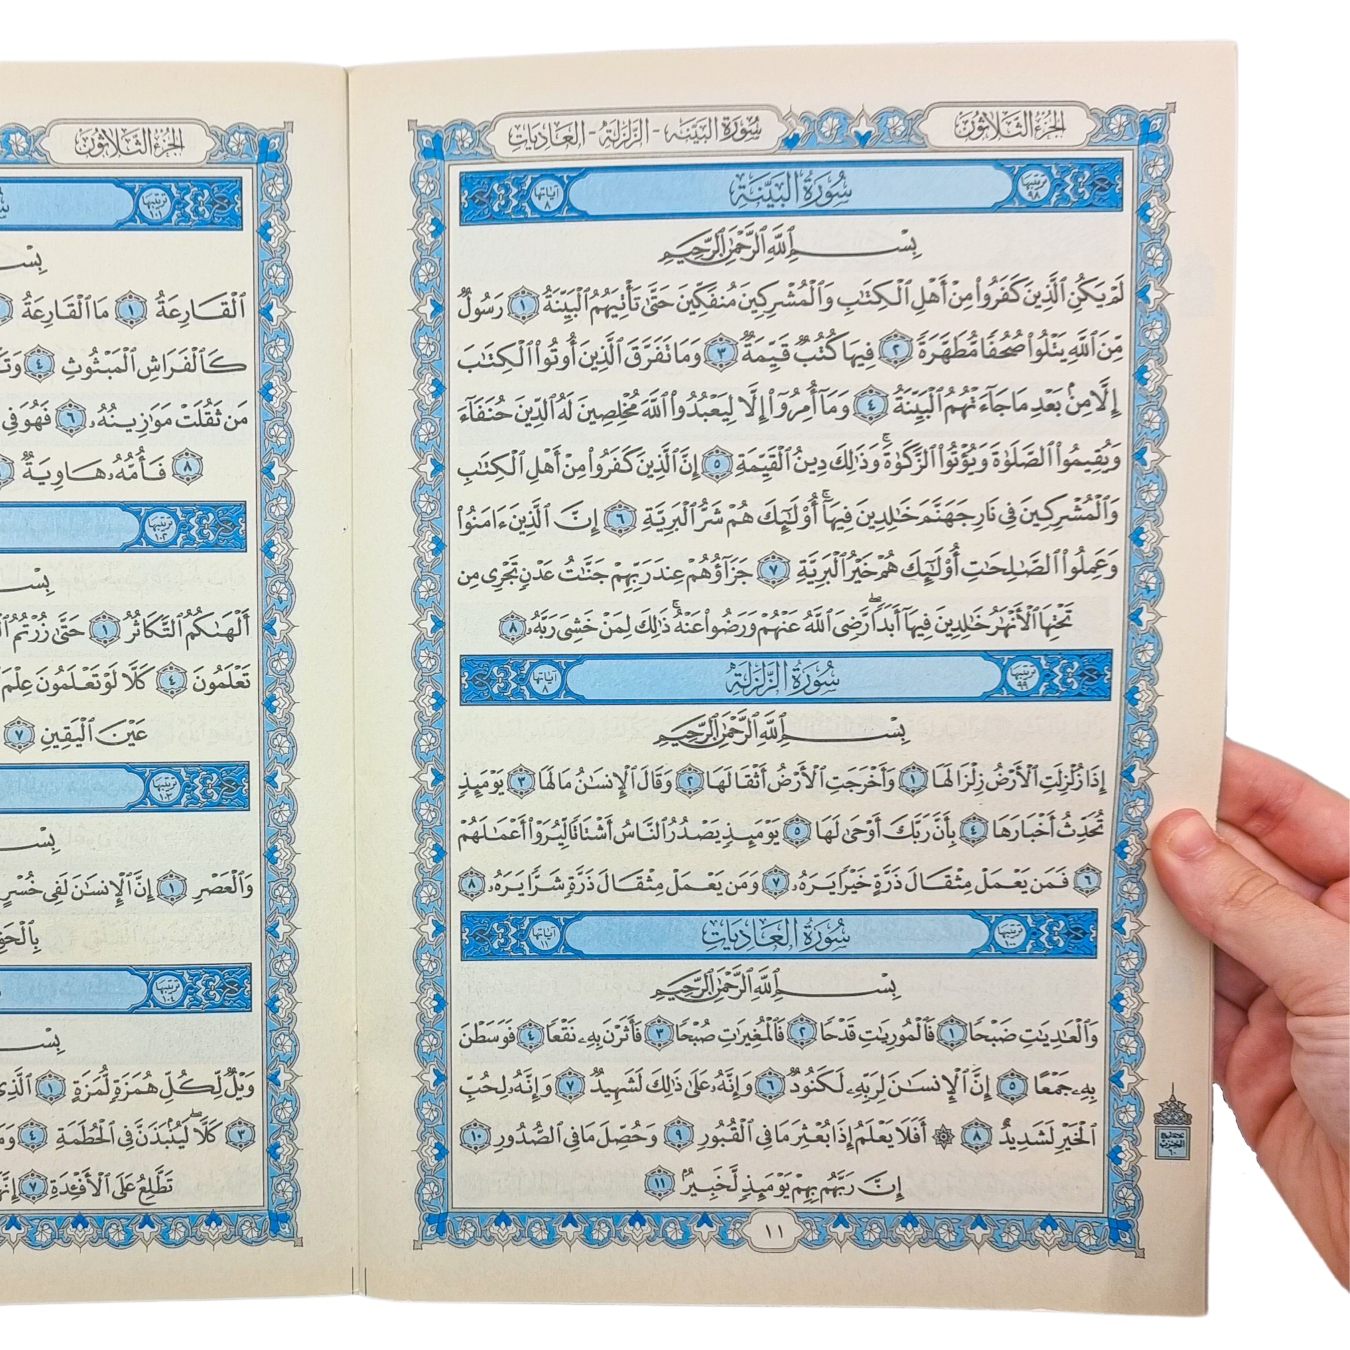 الجزء الثلاثون
سورة البينة - الزلزلة - العاديات
ترتيبها ٩٨
سُورَةُ البَيِّنَةِ
آياتها ٨
بِسْمِ اللَّهِ الرَّحْمَٰنِ الرَّحِيمِ
لَمْ يَكُنِ ٱلَّذِينَ كَفَرُوا۟ مِنْ أَهْلِ ٱلْكِتَٰبِ وَٱلْمُشْرِكِينَ مُنفَكِّينَ حَتَّىٰ تَأْتِيَهُمُ ٱلْبَيِّنَةُ ١ رَسُولٌ
مِّنَ ٱللَّهِ يَتْلُوا۟ صُحُفًا مُّطَهَّرَةً ٢ فِيهَا كُتُبٌ قَيِّمَةٌ ٣ وَمَا تَفَرَّقَ ٱلَّذِينَ أُوتُوا۟ ٱلْكِتَٰبَ
إِلَّا مِنۢ بَعْدِ مَا جَآءَتْهُمُ ٱلْبَيِّنَةُ ٤ وَمَآ أُمِرُوٓا۟ إِلَّا لِيَعْبُدُوا۟ ٱللَّهَ مُخْلِصِينَ لَهُ ٱلدِّينَ حُنَفَآءَ
وَيُقِيمُوا۟ ٱلصَّلَوٰةَ وَيُؤْتُوا۟ ٱلزَّكَوٰةَ ۚ وَذَٰلِكَ دِينُ ٱلْقَيِّمَةِ ٥ إِنَّ ٱلَّذِينَ كَفَرُوا۟ مِنْ أَهْلِ ٱلْكِتَٰبِ
وَٱلْمُشْرِكِينَ فِى نَارِ جَهَنَّمَ خَٰلِدِينَ فِيهَآ ۚ أُو۟لَٰٓئِكَ هُمْ شَرُّ ٱلْبَرِيَّةِ ٦ إِنَّ ٱلَّذِينَ ءَامَنُوا۟
وَعَمِلُوا۟ ٱلصَّٰلِحَٰتِ أُو۟لَٰٓئِكَ هُمْ خَيْرُ ٱلْبَرِيَّةِ ٧ جَزَآؤُهُمْ عِندَ رَبِّهِمْ جَنَّٰتُ عَدْنٍ تَجْرِى مِن
تَحْتِهَا ٱلْأَنْهَٰرُ خَٰلِدِينَ فِيهَآ أَبَدًا ۖ رَّضِىَ ٱللَّهُ عَنْهُمْ وَرَضُوا۟ عَنْهُ ۚ ذَٰلِكَ لِمَنْ خَشِىَ رَبَّهُۥ ٨
ترتيبها ٩٩
سُورَةُ الزَّلْزَلَةِ
آياتها ٨
بِسْمِ اللَّهِ الرَّحْمَٰنِ الرَّحِيمِ
إِذَا زُلْزِلَتِ ٱلْأَرْضُ زِلْزَالَهَا ١ وَأَخْرَجَتِ ٱلْأَرْضُ أَثْقَالَهَا ٢ وَقَالَ ٱلْإِنسَٰنُ مَا لَهَا ٣ يَوْمَئِذٍ
تُحَدِّثُ أَخْبَارَهَا ٤ بِأَنَّ رَبَّكَ أَوْحَىٰ لَهَا ٥ يَوْمَئِذٍ يَصْدُرُ ٱلنَّاسُ أَشْتَاتًا لِّيُرَوْا۟ أَعْمَٰلَهُمْ
٦ فَمَن يَعْمَلْ مِثْقَالَ ذَرَّةٍ خَيْرًا يَرَهُۥ ٧ وَمَن يَعْمَلْ مِثْقَالَ ذَرَّةٍ شَرًّا يَرَهُۥ ٨
ترتيبها ١٠٠
سُورَةُ العَادِيَاتِ
آياتها ١١
بِسْمِ اللَّهِ الرَّحْمَٰنِ الرَّحِيمِ
وَٱلْعَٰدِيَٰتِ ضَبْحًا ١ فَٱلْمُورِيَٰتِ قَدْحًا ٢ فَٱلْمُغِيرَٰتِ صُبْحًا ٣ فَأَثَرْنَ بِهِۦ نَقْعًا ٤ فَوَسَطْنَ
بِهِۦ جَمْعًا ٥ إِنَّ ٱلْإِنسَٰنَ لِرَبِّهِۦ لَكَنُودٌ ٦ وَإِنَّهُۥ عَلَىٰ ذَٰلِكَ لَشَهِيدٌ ٧ وَإِنَّهُۥ لِحُبِّ
ٱلْخَيْرِ لَشَدِيدٌ ٨ ۞ أَفَلَا يَعْلَمُ إِذَا بُعْثِرَ مَا فِى ٱلْقُبُورِ ٩ وَحُصِّلَ مَا فِى ٱلصُّدُورِ ١٠
إِنَّ رَبَّهُم بِهِمْ يَوْمَئِذٍ لَّخَبِيرٌۢ ١١
الحزب ٦٠
١١
الجزء الثلاثون
ترتيبها ١٠١
بِسْ
ٱلْقَارِعَةُ ١ مَا ٱلْقَارِعَةُ
كَٱلْفَرَاشِ ٱلْمَبْثُوثِ ٤
مَن ثَقُلَتْ مَوَٰزِينُهُۥ ٦ فَهُوَ فِى
٨ فَأُمُّهُۥ هَاوِيَةٌ
ترتيبها ١٠٢
بِسْ
أَلْهَىٰكُمُ ٱلتَّكَاثُرُ ١ حَتَّىٰ زُرْتُمُ
تَعْلَمُونَ ٤ كَلَّا لَوْ تَعْلَمُونَ عِلْمَ
عَيْنَ ٱلْيَقِينِ ٧
ترتيبها ١٠٣
بِسْ
وَٱلْعَصْرِ ١ إِنَّ ٱلْإِنسَٰنَ لَفِى خُسْرٍ
ترتيبها ١٠٤
بِسْ
وَيْلٌ لِّكُلِّ هُمَزَةٍ لُّمَزَةٍ ١ ٱلَّذِى
٣ كَلَّا ۖ لَيُنۢبَذَنَّ فِى ٱلْحُطَمَةِ ٤
تَطَّلِعُ عَلَى ٱلْأَفْـِٔدَةِ ٧